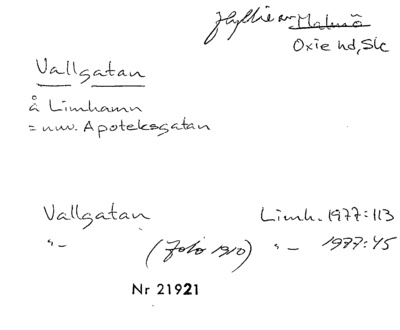 Hyllie sn Malmö
Oxie hd, Sk
Vallgatan
å Limhamn
= nuv. Apoteksgatan
Vallgatan Limh. 1977:113
"— (foto 1910) "— 1977:45
Nr 21921